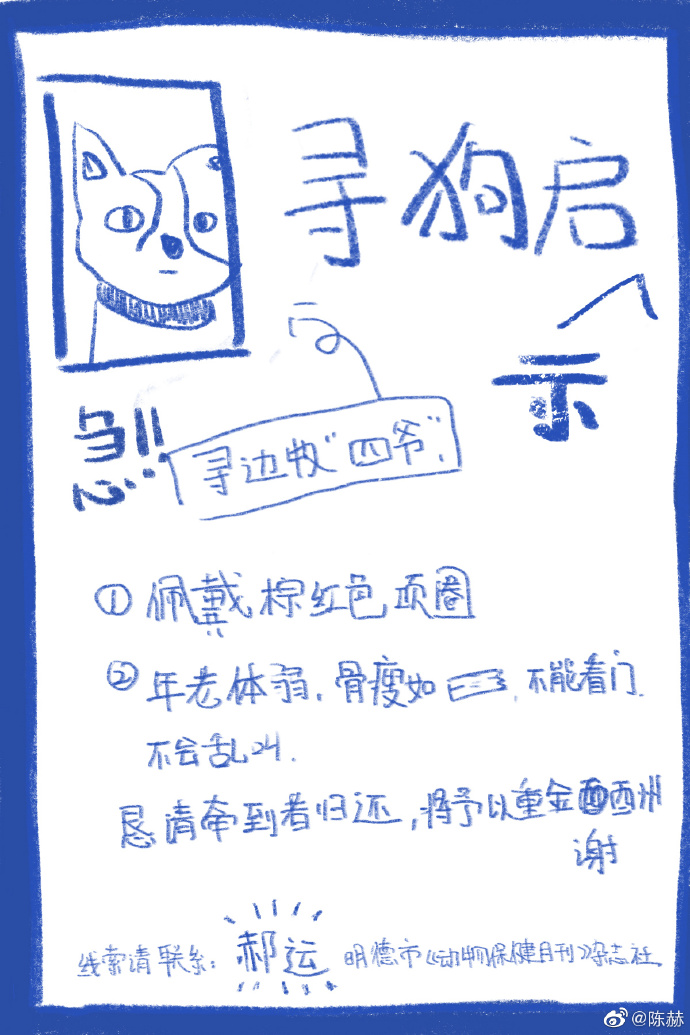 寻狗启
示
急!!
寻边牧“四爷”.
① 佩戴棕红色项圈
② 年老体弱.骨瘦如 ,不能看门.
不会乱叫.
恳请牵到者归还,将予以重金酬
谢
线索请联系:郝运 明德市《动物保健月刊》杂志社
@陈赫